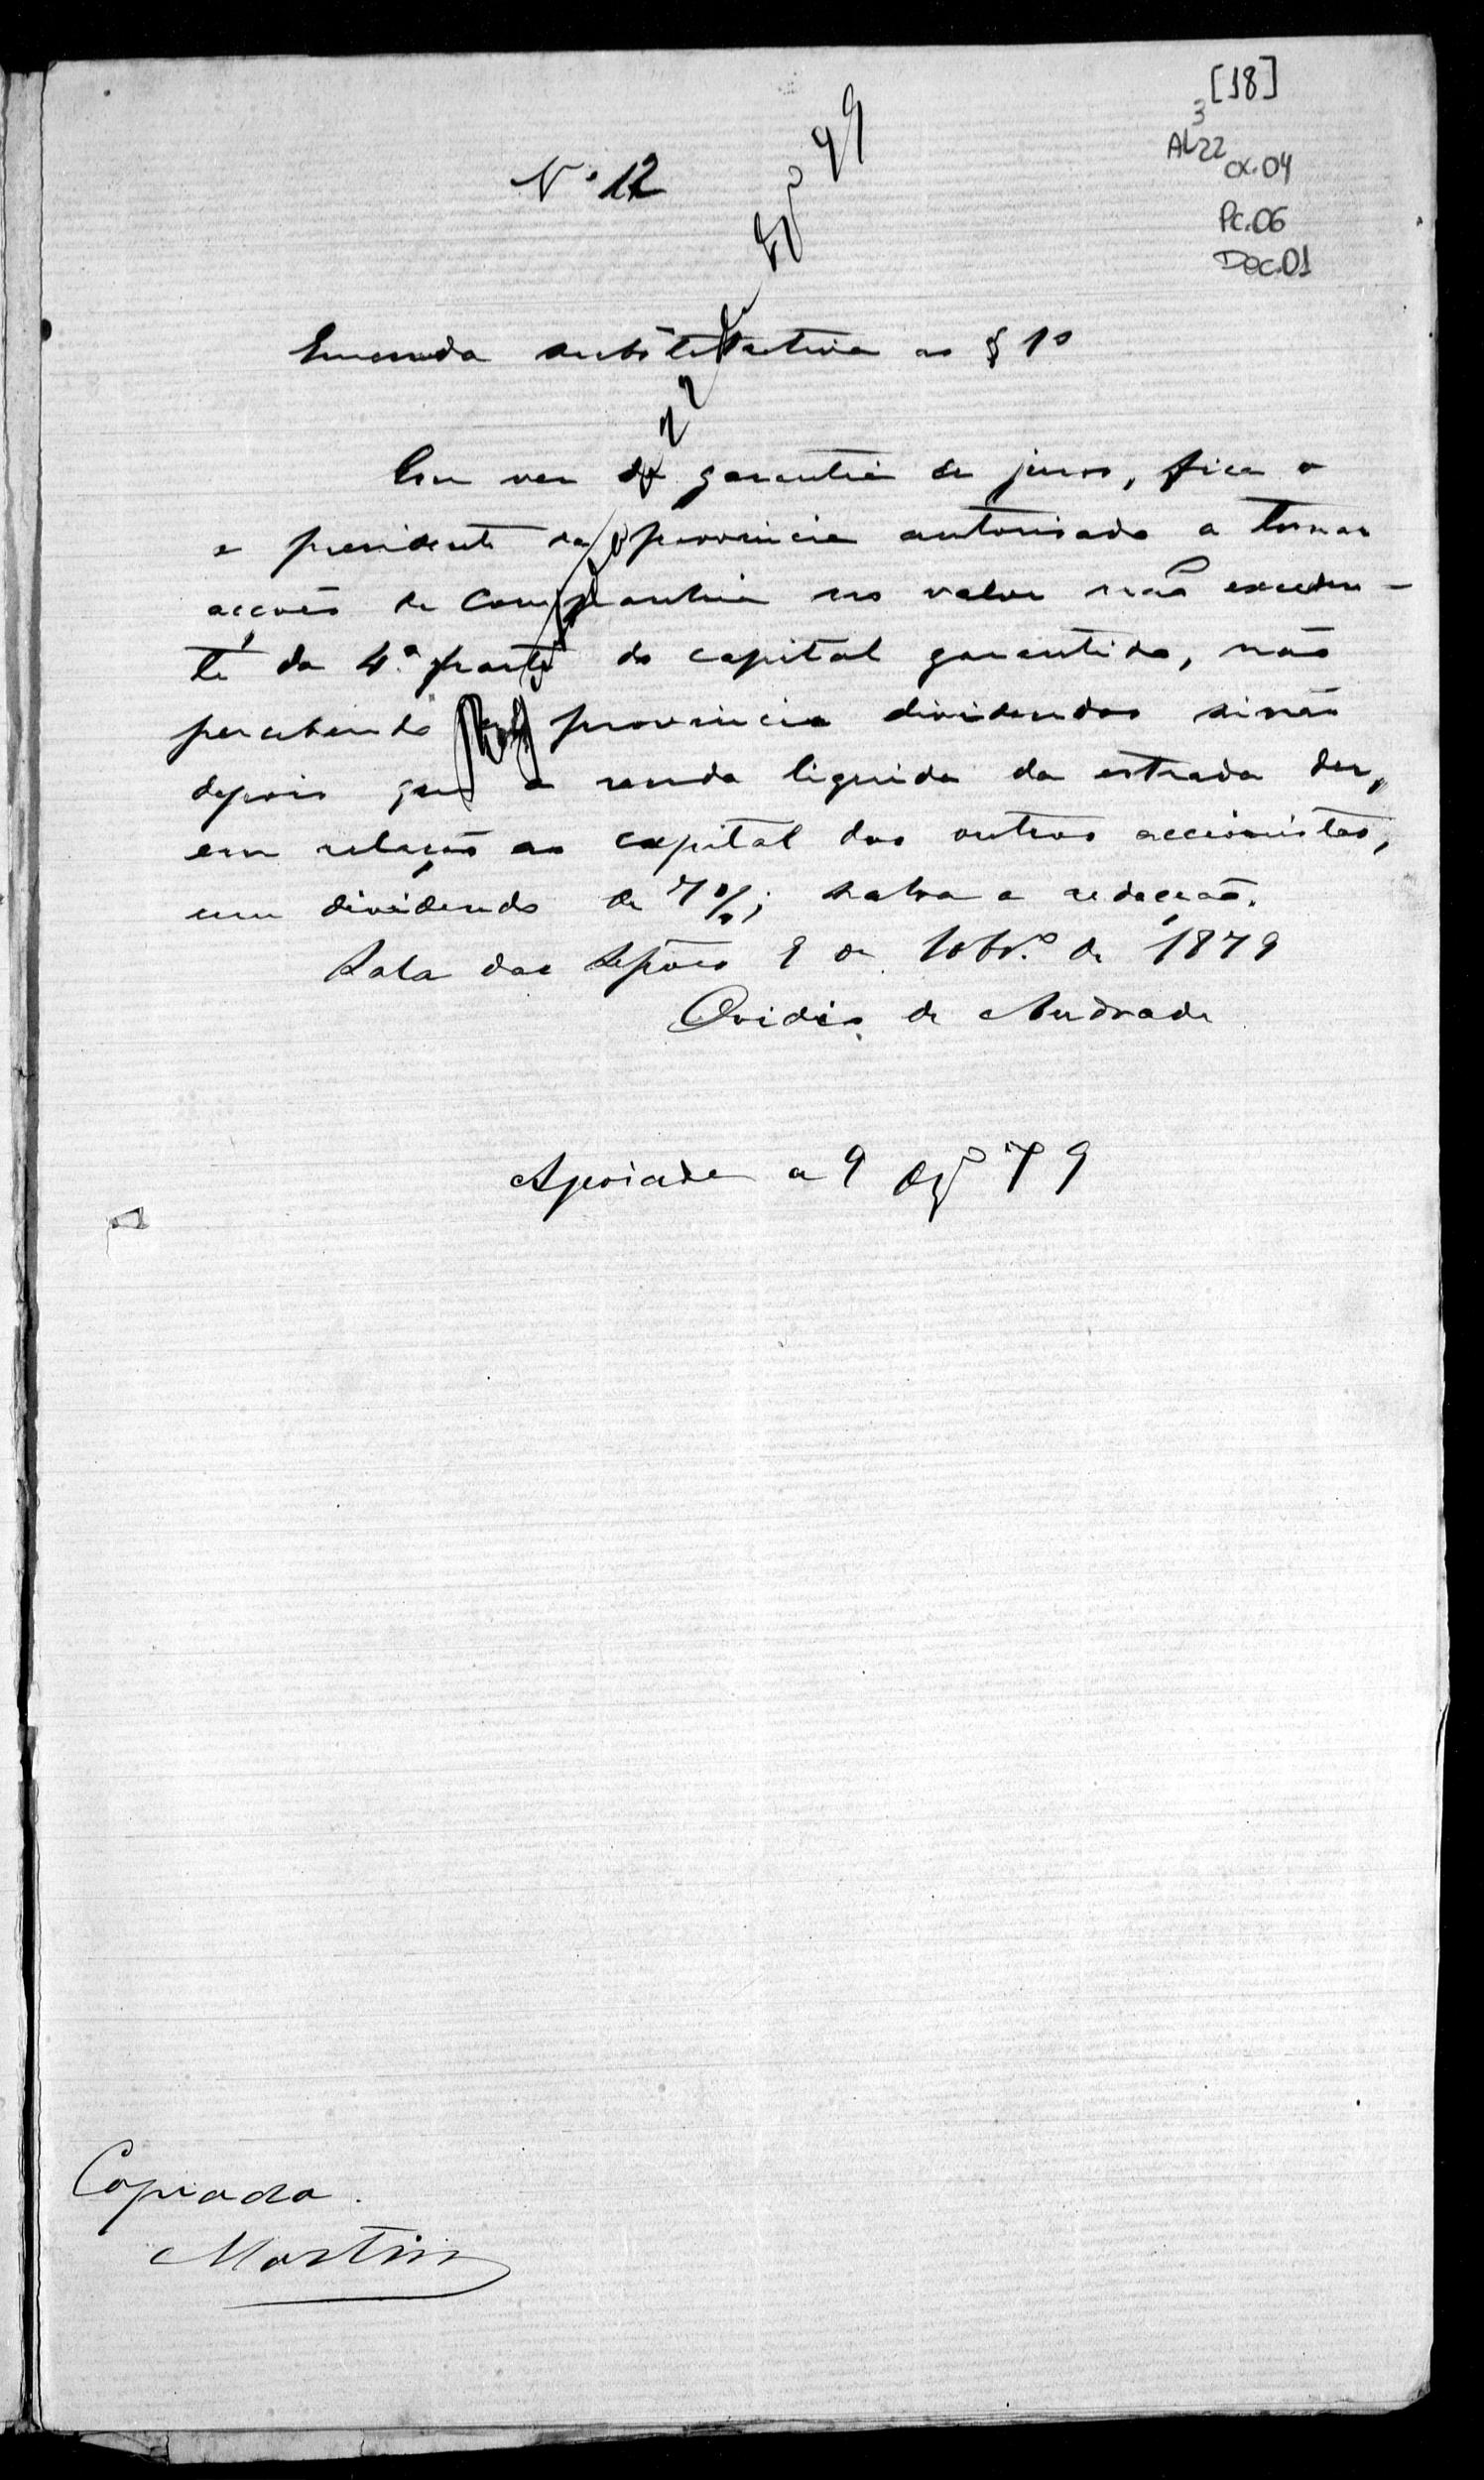 [18]
3
AL22
cx.04
Pc.06
Doc.01
Nº 12
Emenda substitutiva ao § 1º
Em vez de garantia de juros, fica o
o presidente da provincia autorisado a tomar
acções da Companhia no valor não exceden-
te da 4ª parte do capital garantido, não
percebendo a provincia dividendos sinão
depois que a renda liquida da estrada der,
em relação ao capital dos outros accionistas,
um dividendo de 7%; salva a redacção.
Sala das Sessões 9 de 10brº de 1879
Ovidio de Andrade
Apoiada a 9 Dezº 79
Copiada.
Martins